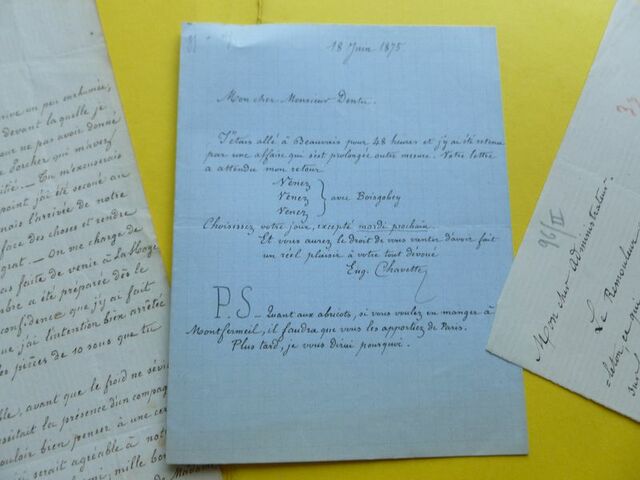 18 Juin 1875
Mon cher Monsieur Dentu.
J'étais allé à Beauvais pour 48 heures et j'y ai été retenu
par une affaire qui s'est prolongée outre mesure. Votre lettre
a attendu mon retour
Venez
Venez } avec Boisgobey
Venez
Choisissez votre jour, excepté mardi prochain.
Et vous aurez le droit de vous vanter d'avoir fait
un réel plaisir à votre tout dévoué
Eug. Chavette
P.S - Quant aux abricots, si vous voulez en manger à
Montfermeil, il faudra que vous les apportiez de Paris.
Plus tard, je vous dirai pourquoi.
rive un peu enrhumée,
devant laquelle je
ne pas avoir donné
Porcher qui m'avez
- Tu m'excuserais
point j'ai été secoué au
mais l'arrivée de notre
face des choses et rendre
- On me charge de
pas faite de venir à La
a été préparée dès le
confidence que j'y ai fait
que j'ai l'intention bien arrêtée
pièces de 10 sous que tu
avant que le froid ne
la présence d'un compag
bien penser à une
serait agréable à
mille
de
96/II
Mon cher Administrateur.
Le